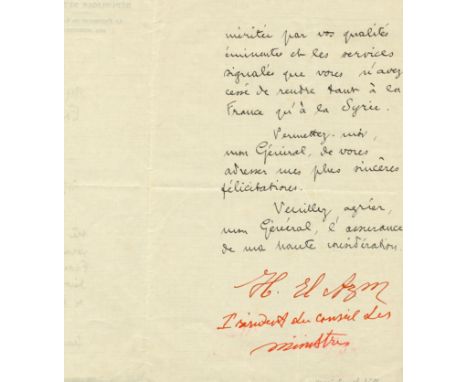 méritée par vos qualités
éminentes et les services
signalés que vous n'avez
cessé de rendre tant à la
France qu'à la Syrie.
Permettez-moi,
mon Général, de vous
adresser mes plus sincères
félicitations.
Veuillez agréer,
mon Général, l'assurance
de ma haute considération.
H. El Azm
Président du conseil des
ministres